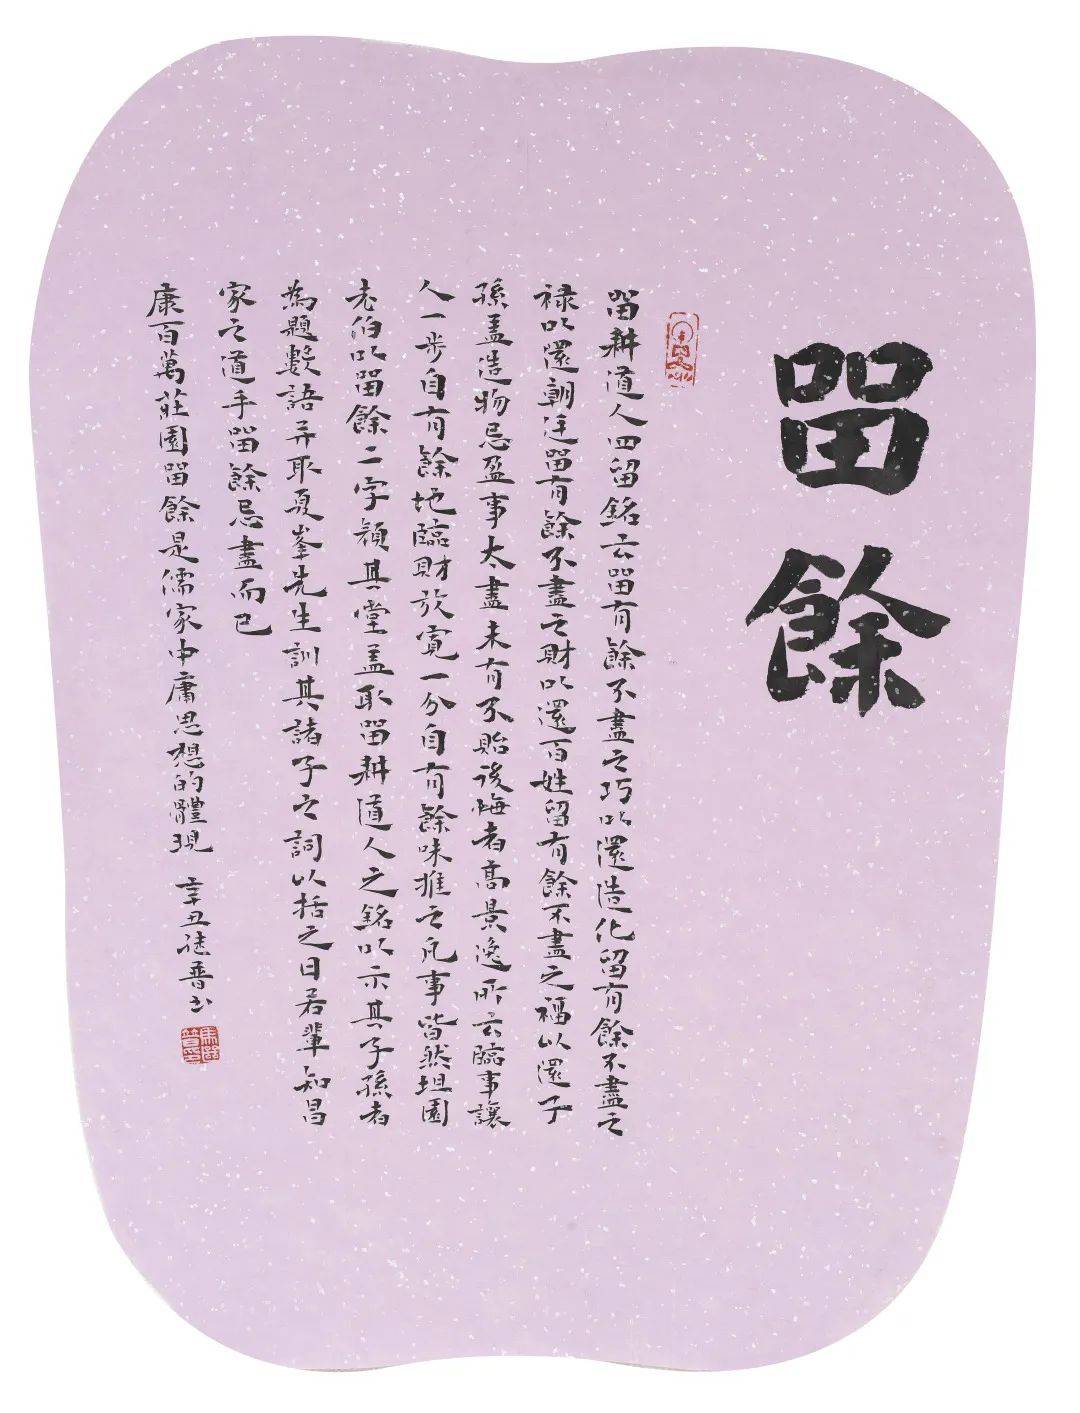 畱餘
畱耕道人四留銘云畱有餘不盡之巧以還造化留有餘不盡之
祿以還朝廷畱有餘不盡之財以還百姓留有餘不盡之福以還子
孫蓋造物忌盈事太盡未有不貽後悔者高景逸所云臨事讓
人一步自有餘地臨財放寬一分自有餘味推之凡事皆然坦園
老伯以畱餘二字顏其堂蓋取畱耕道人之銘以示其子孫者
為題數語并取夏峯先生訓其諸子之詞以括之曰若輩知昌
家之道乎畱餘忌盡而已
康百萬莊園畱餘是儒家中庸思想的體現 辛丑 普书